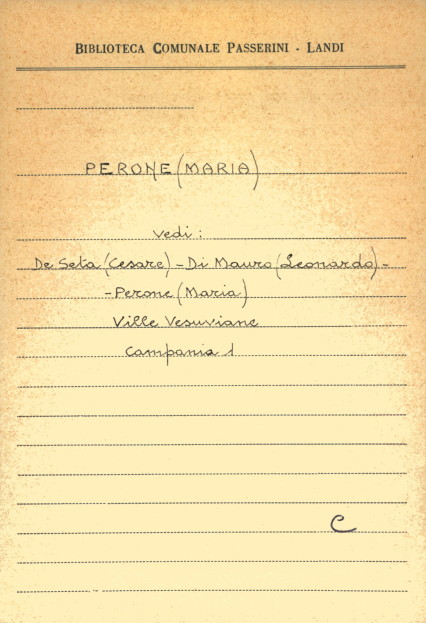 BIBLIOTECA COMUNALE PASSERINI - LANDI
PERONE (MARIA)
Vedi:
De Seta (Cesare) - Di Mauro (Leonardo) -
- Perone (Maria)
Ville Vesuviane
Campania 1
C